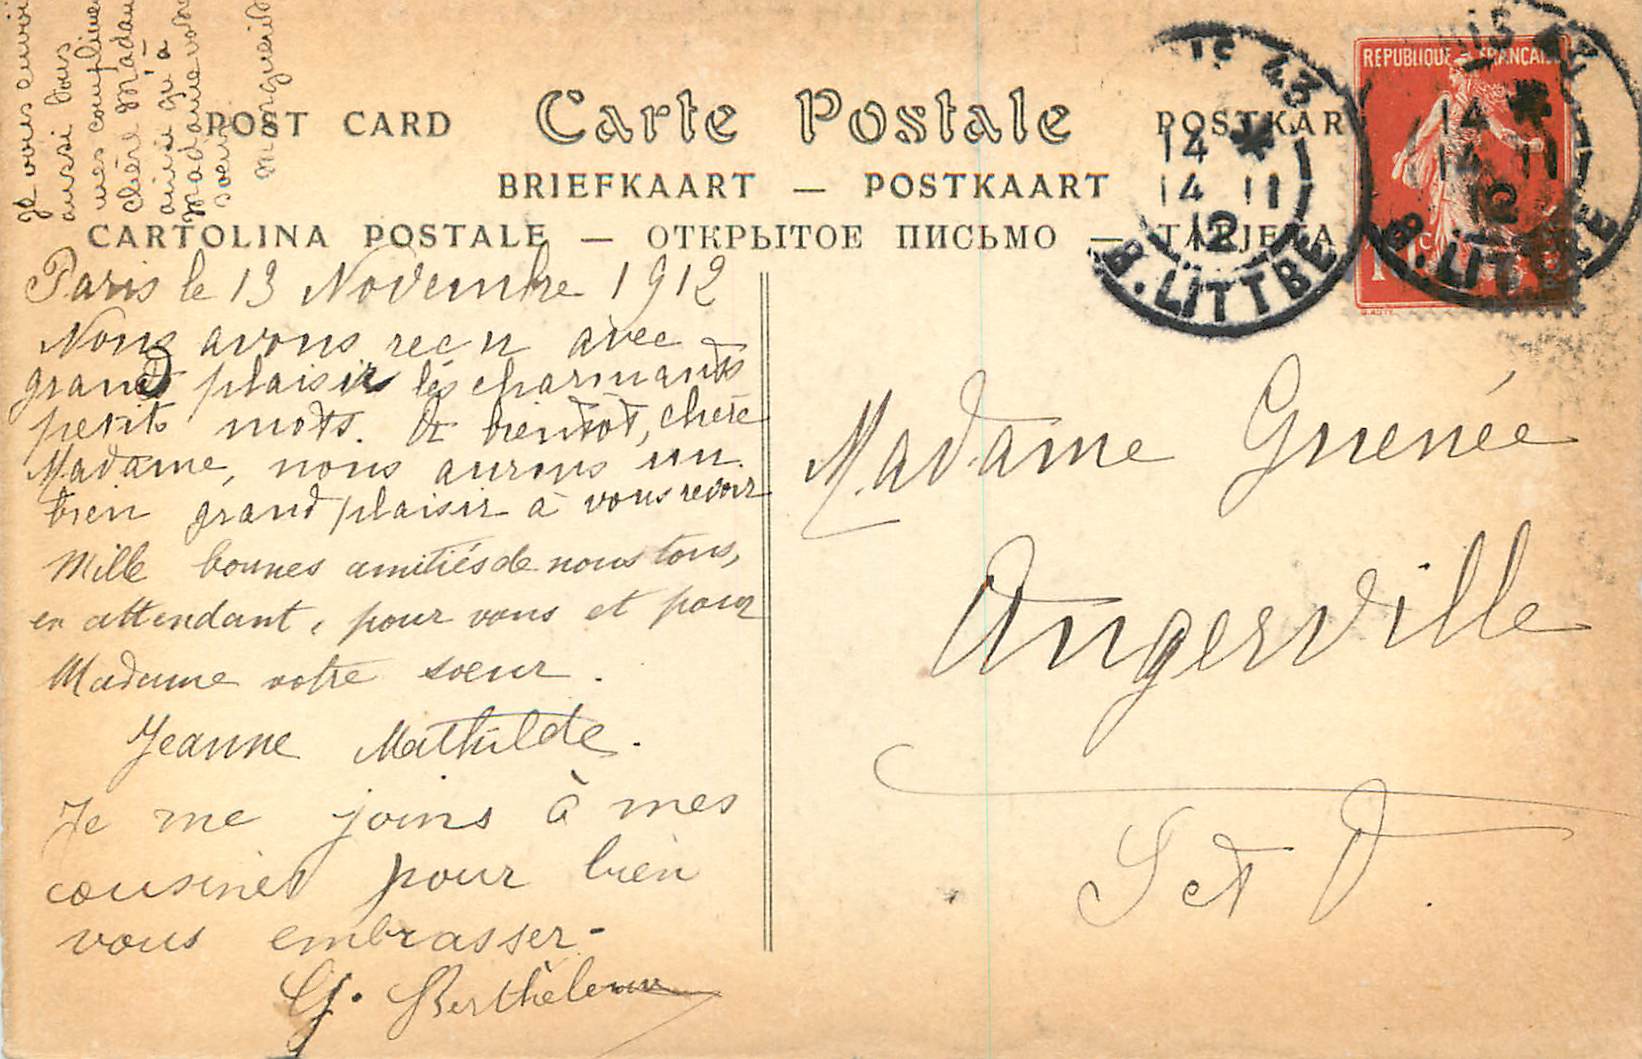 Je vous envoi
aussi tous
mes complime
chère Madame
ainsi qu'à
Madame votre
soeur
Marguerite
POST CARD Carte Postale POSTKAR
BRIEFKAART — POSTKAART
CARTOLINA POSTALE — ОТКРЫТОЕ ПИСЬМО — TARJETA
REPUBLIQUE FRANÇAISE
10c
IS 43
14 *
14 11
12
R. LITTRE
IS 43
14 *
14 11
12
R. LITTRE
Paris le 13 Novembre 1912
Nous avons reçu avec
grand plaisir les charmants
petits mots. A bientôt, chère
Madame, nous aurons un
bien grand plaisir à vous revoir
Mille bonnes amitiés de nous tous,
en attendant, pour vous et pour
Madame votre soeur.
Jeanne Mathilde.
Je me joins à mes
cousines pour bien
vous embrasser -
G. Berthèleme
Madame Guenée
Angerville
S et O.